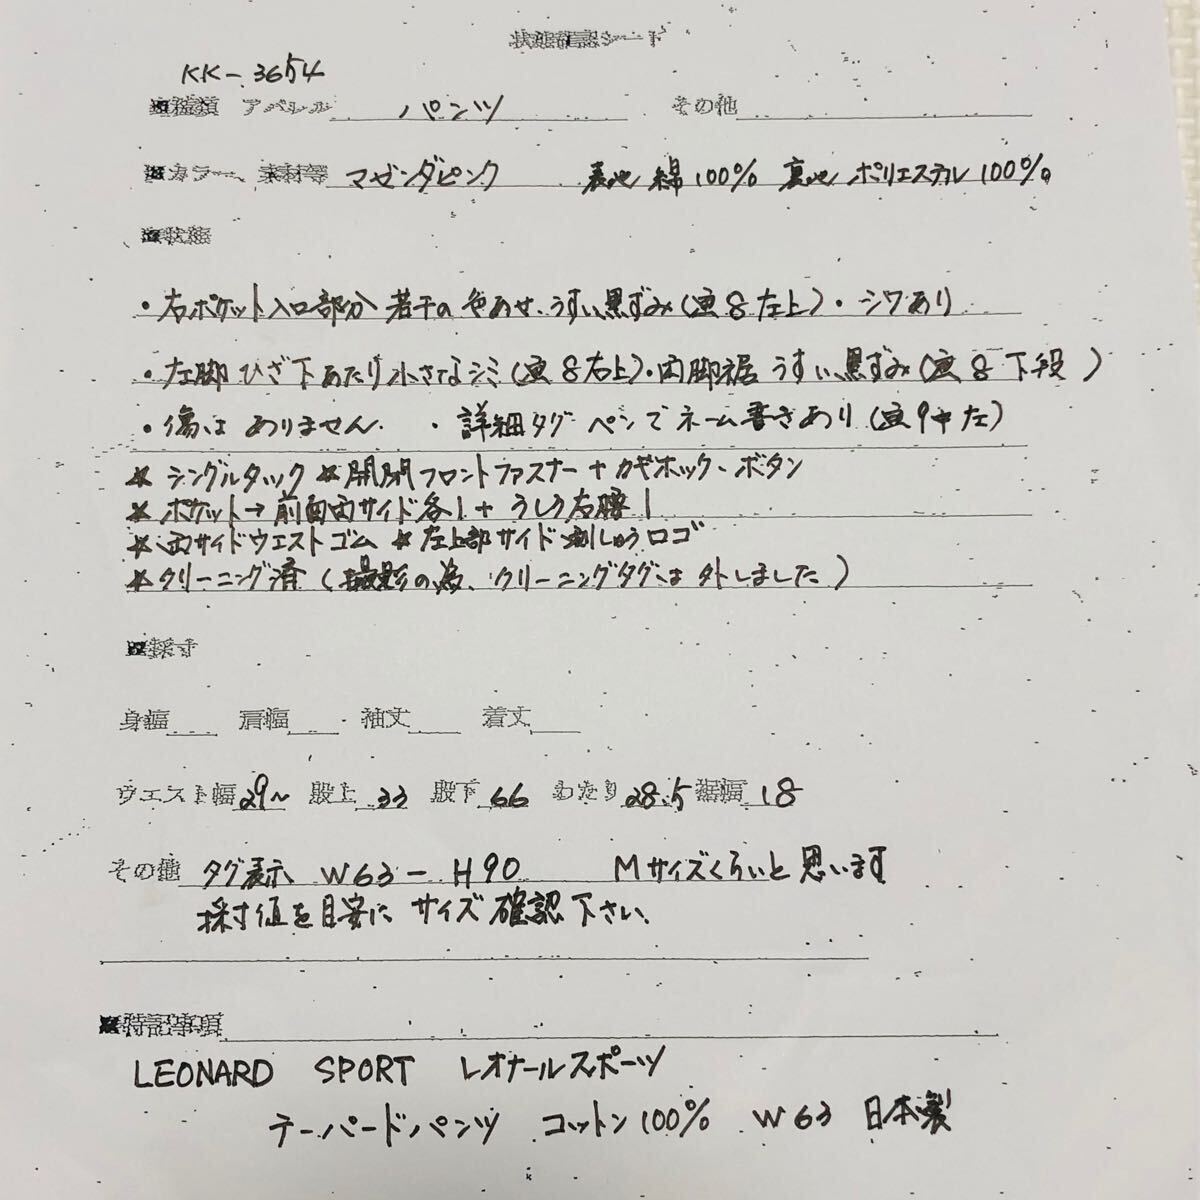 状態確認シート
KK-3654
■種類 アパレル パンツ その他
■カラー、素材等 マゼンダピンク 表地 綿100% 裏地 ポリエステル100%
■状態
・右ポケット入口部分 若干の色あせ、うすい黒ずみ(画8左上)・シワあり
・左脚 ひざ下あたり小さなシミ(画8右上)・両脚裾 うすい黒ずみ(画8下段)
・傷は ありません ・詳細タグ ペンでネーム書きあり(画9中左)
☆ シングルタック ☆開閉フロントファスナー+カギホック・ボタン
☆ポケット→前面両サイド各1+うしろ右腰1
☆両サイドウエストゴム ☆左上部サイド刺しゅうロゴ
☆クリーニング済(撮影の為、クリーニングタグは外しました)
■採寸
身幅 肩幅 袖丈 着丈
ウエスト幅29~ 股上33 股下66 わたり28.5 裾幅18
その他 タグ表示 W63-H90 Mサイズくらいと思います
採寸値を目安にサイズ確認下さい、
■特記事項
LEONARD SPORT レオナールスポーツ
テーパードパンツ コットン100% W63 日本製